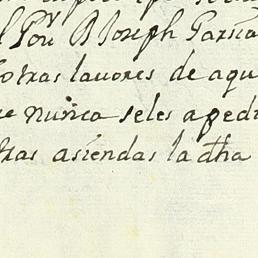 Por B Joseph Garsia
otras lauores de aqu
nunca seles aped
asiendas la dha